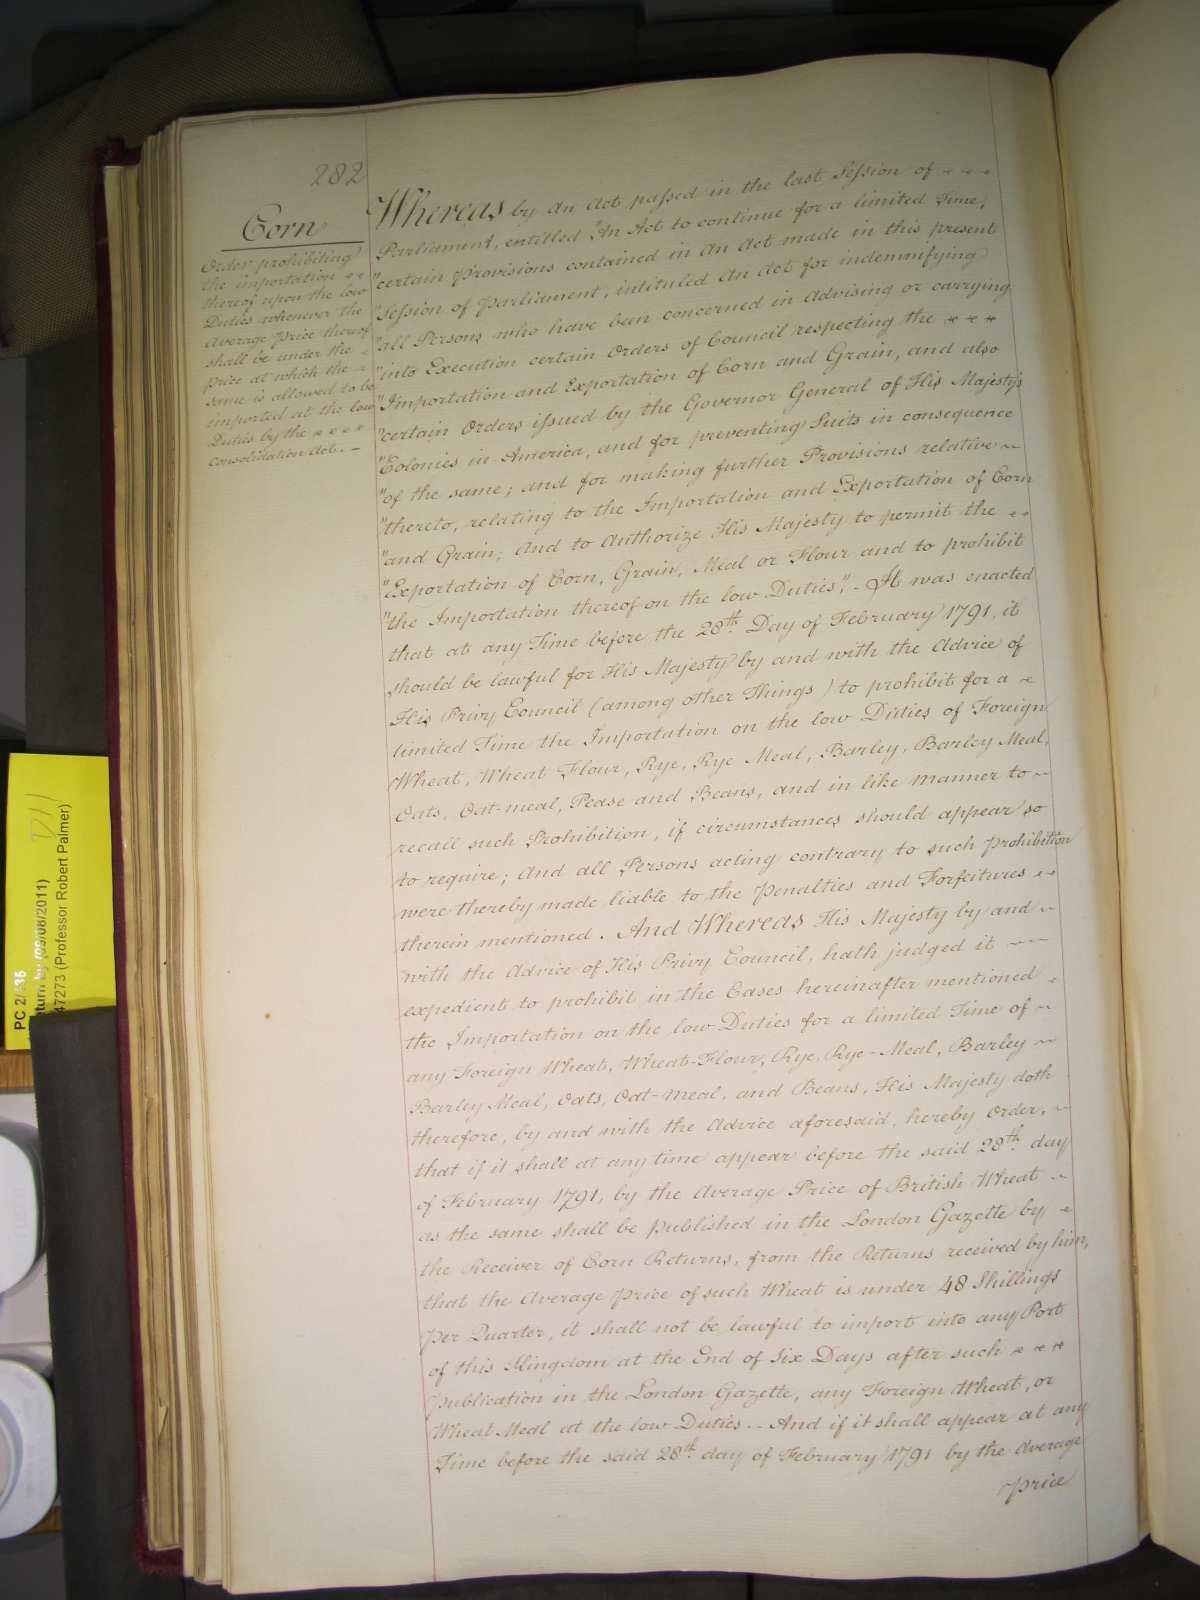 282
Corn
Order prohibiting
the importation
thereof upon the low
Duties whenever the
average Price thereof
shall be under the
price at which the
same is allowed to be
imported at the low
Duties by the
consolidation Act. —
Whereas by an Act passed in the last Session of
Parliament, entitled "An Act to continue for a limited Time,
"certain Provisions contained in an Act made in this present
"Session of Parliament, intituled An Act for indemnifying
"all Persons who have been concerned in advising or carrying
"into Execution certain Orders of Council respecting the
"Importation and Exportation of Corn and Grain, and also
"certain Orders issued by the Governor General of His Majesty's
"Colonies in America, and for preventing Suits in consequence
"of the same; and for making further Provisions relative
"thereto, relating to the Importation and Exportation of Corn
"and Grain; And to Authorize His Majesty to permit the
"Exportation of Corn, Grain, Meal or Flour and to prohibit
"the Importation thereof on the low Duties", - It was enacted
that at any Time before the 28th. Day of February 1791, it
should be lawful for His Majesty by and with the Advice of
His Privy Council (among other Things) to prohibit for a
limited Time the Importation on the low Duties of Foreign
Wheat, Wheat Flour, Rye, Rye Meal, Barley, Barley Meal,
Oats, Oat-meal, Pease and Beans, and in like manner to
recall such Prohibition, if circumstances should appear so
to require; And all Persons acting contrary to such prohibition
were thereby made liable to the Penalties and Forfeitures
therein mentioned. And Whereas His Majesty by and
with the Advice of His Privy Council, hath judged it
expedient to prohibit in the Cases hereinafter mentioned
the Importation on the low Duties for a limited Time of
any Foreign Wheat, Wheat-Flour, Rye, Rye-Meal, Barley
Barley Meal, Oats, Oat-meal, and Beans, His Majesty doth
therefore, by and with the Advice aforesaid, hereby Order,
that if it shall at any time appear before the said 28th. day
of February 1791, by the Average Price of British Wheat
as the same shall be published in the London Gazette by
the Receiver of Corn Returns, from the Returns received by him,
that the Average price of such Wheat is under 48 Shillings
Per Quarter, it shall not be lawful to import into any Port
of this Kingdom at the End of Six Days after such
Publication in the London Gazette, any Foreign Wheat, or
Wheat Meal at the low Duties. - And if it shall appear at any
Time before the said 28th. day of February 1791 by the Average
Price
PC 2/135
by (09/08/2011)
47273 (Professor Robert Palmer)